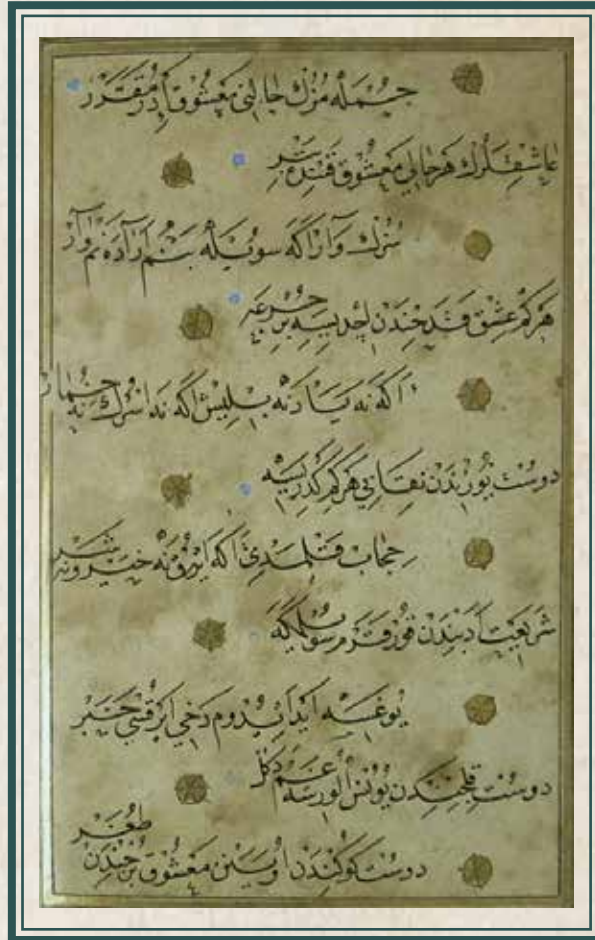 جُمله مُزك حالني معشوق أدر مُقَدَّر
عاشقلرك هر حالي معشوق قتنده بتر
سُزك وارا اكه سويله بنم ارادنم وار
هركم عشق قدحندن اچديسه بر جرعه
اكه نه ياد نه بيليش اكه نه اسرك نه خمار
دوست يوزندن نقابي هركم كدرسه
حجاب قلمدي اكه ايرق نه خير ونه شر
شريعت ادبندن قورقرم سويلمكه
يوغسه ايدايدوم دخي ايرقسي خبر
دوست قلجندن يونس اولورسه غم دكل
دوست كوكندن اوسن معشوق برجندن طغر